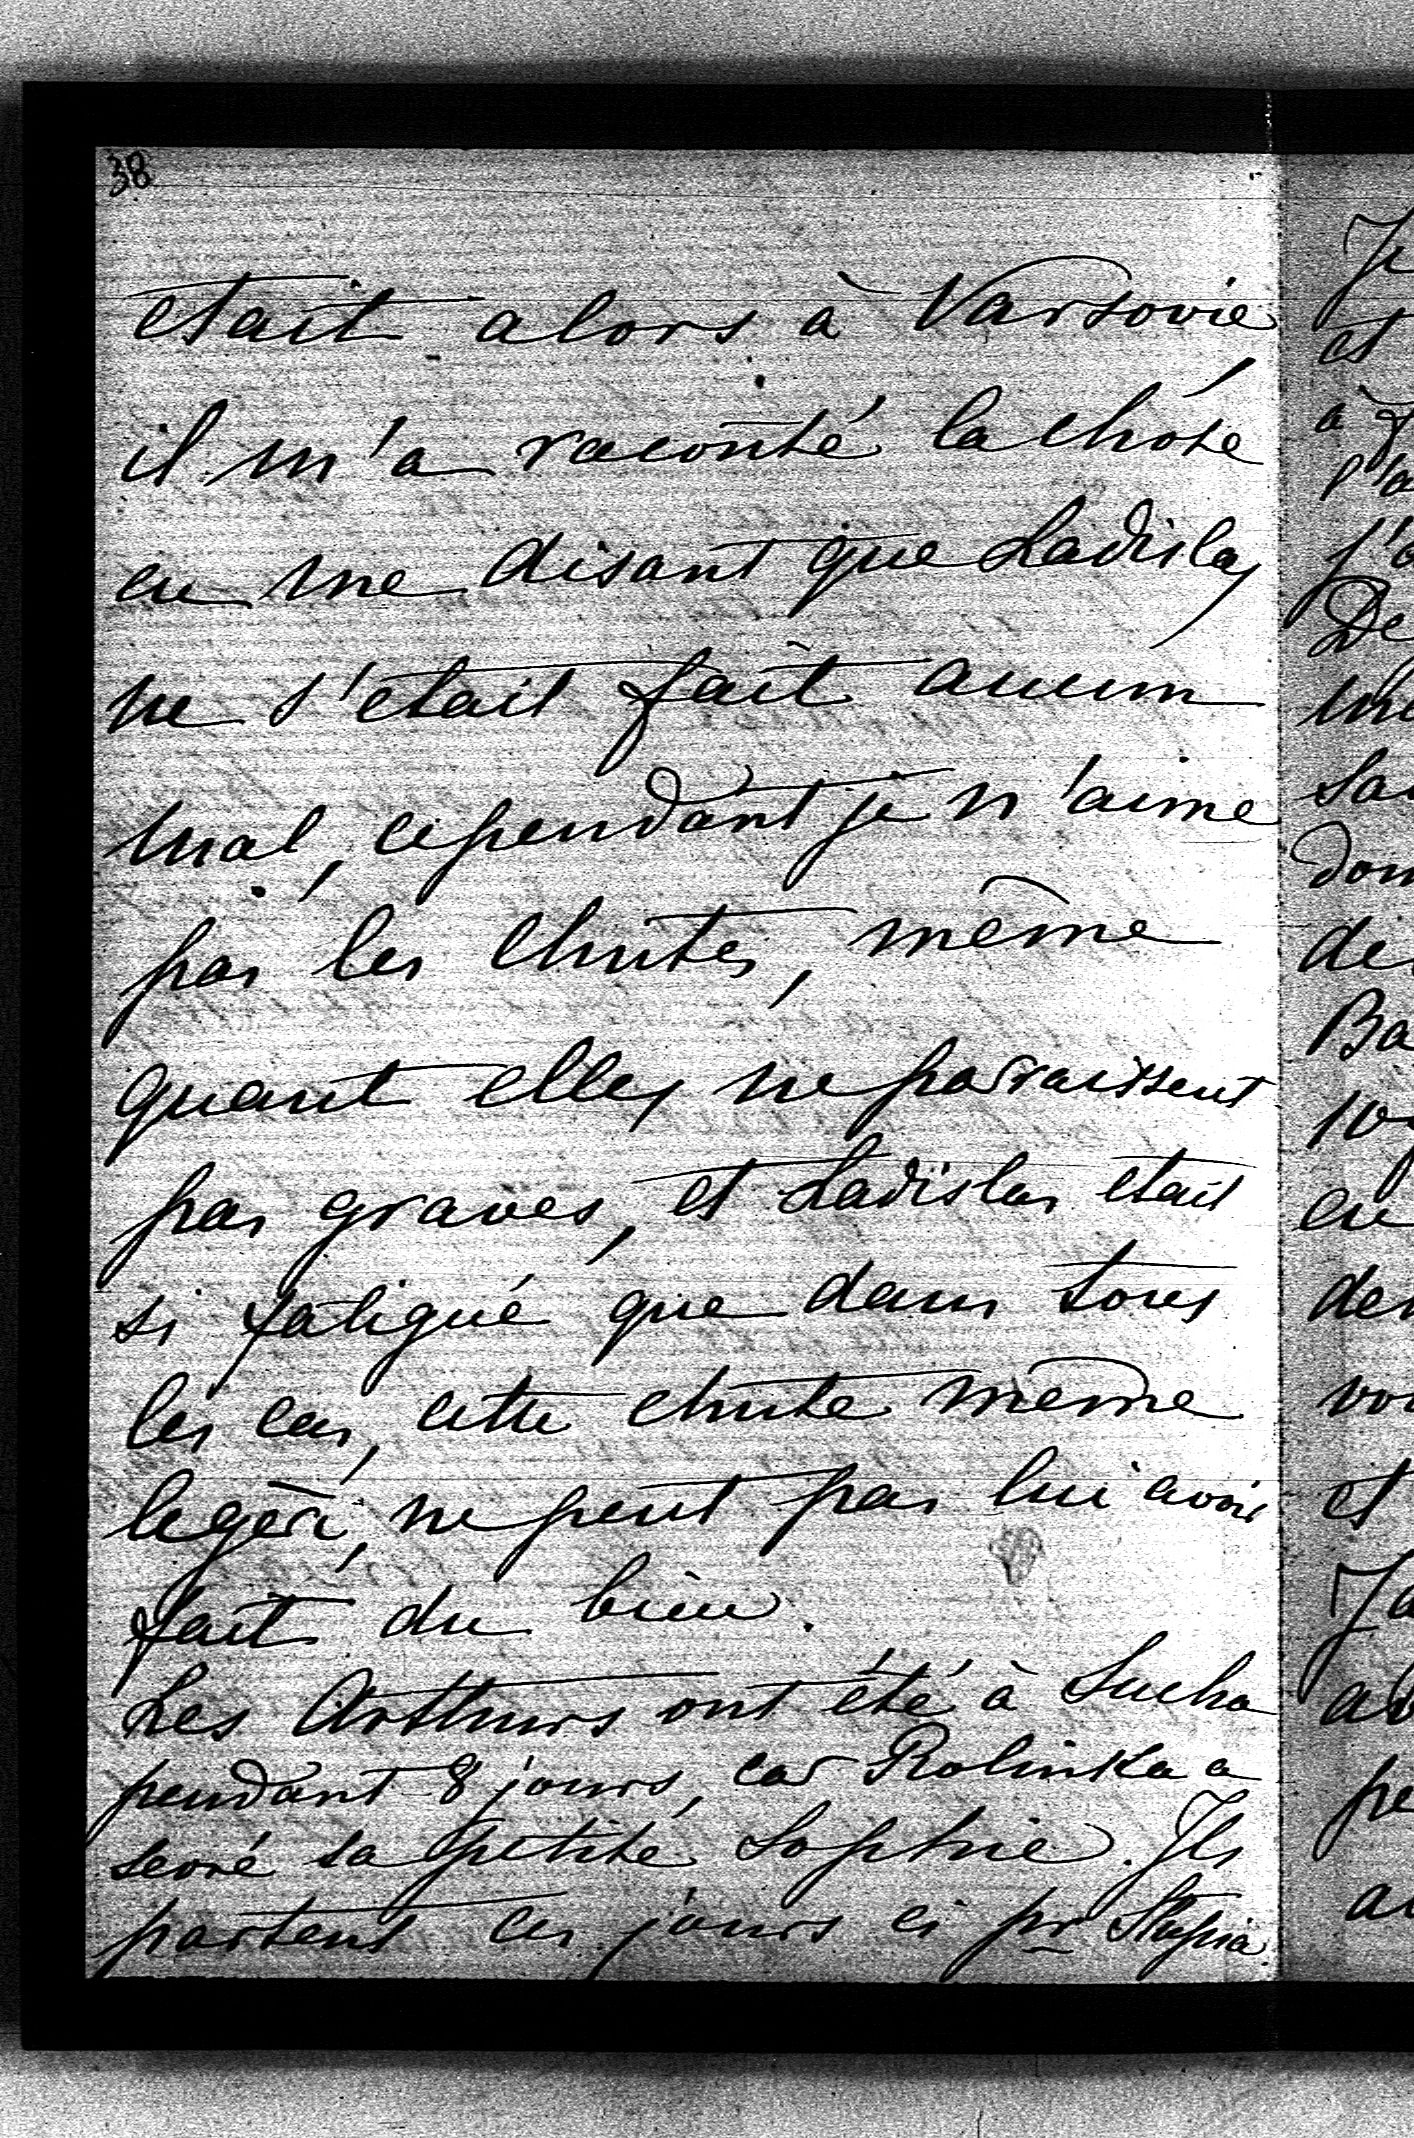 38
etait alors à Varsovie
il m'a raconté la chose
en me disant que Ladislas
ne s'etait fait aucun
mal, cependant je n'aime
pas les chutes, même
quant elles ne parraissent
pas graves, et Ladislas etait
si fatigué que dans tous
les cas, cette chute même
legère, ne peut pas lui avoir
fait du bien.
Les Arthurs ont été à Sucha
pendant 8 jours, car Rolinka a
sevré sa petite Sophie. Ils
partent ces jours ci pr Stupia